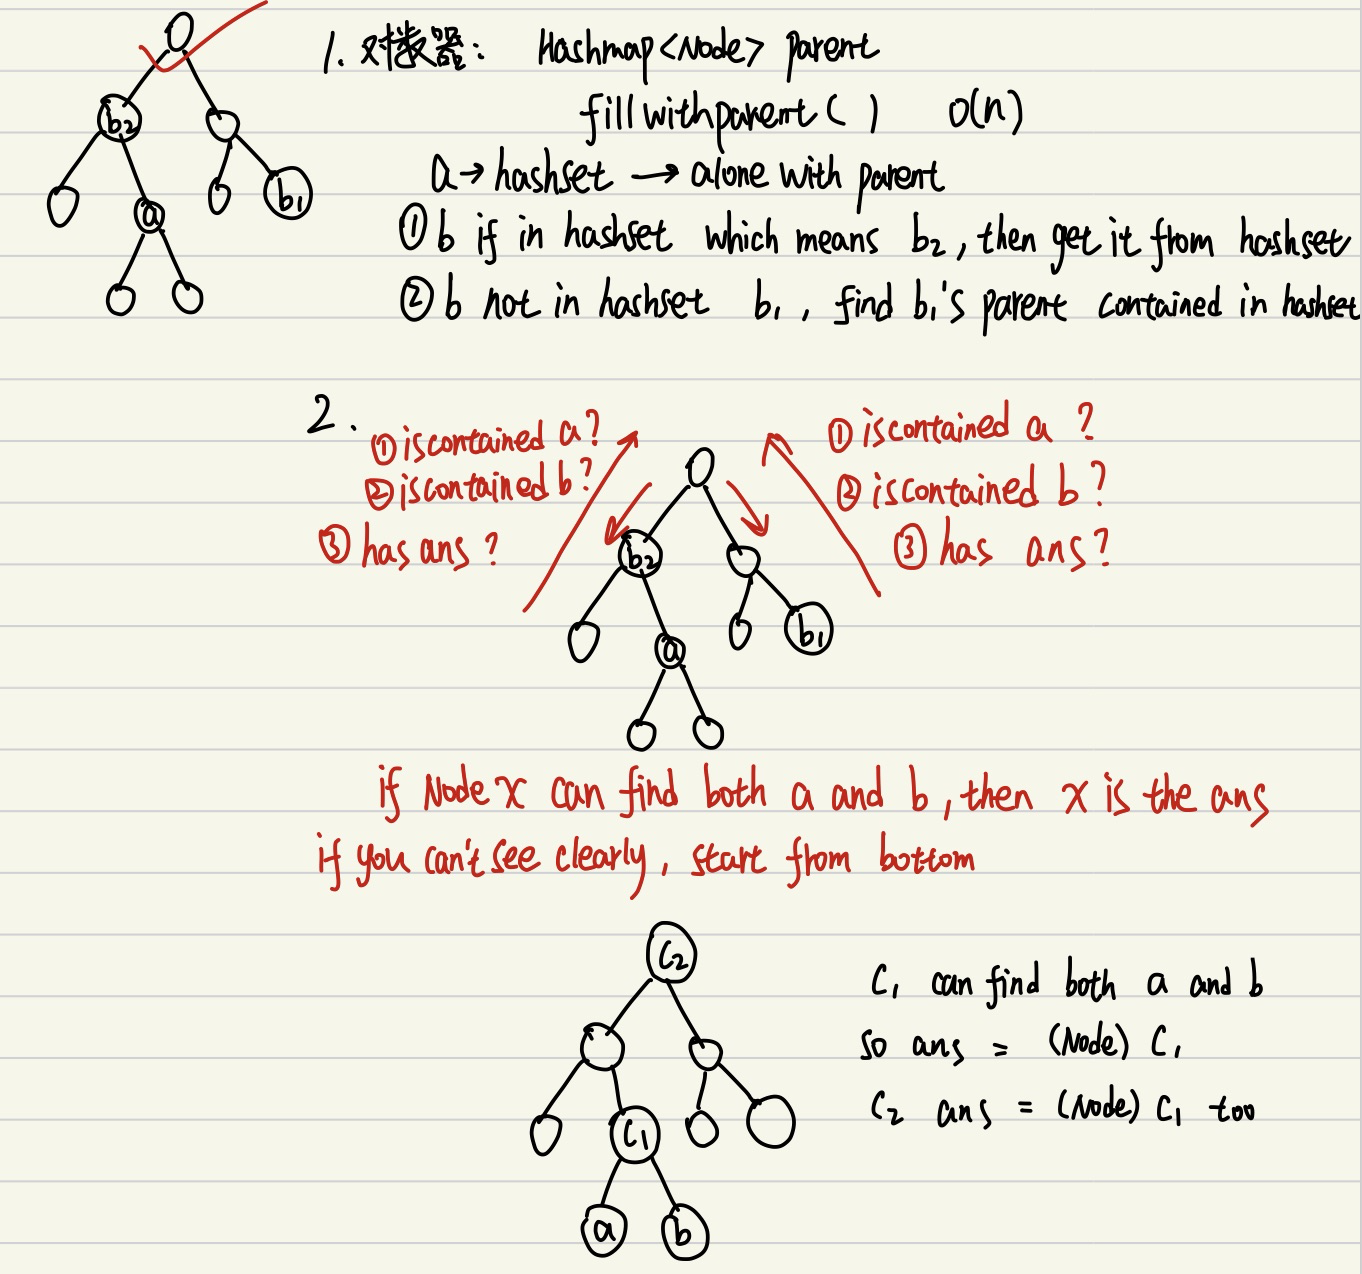 1. 对拨器: Hashmap<Node> parent
fillwithparent ( ) o(n)
a→hashset → alone with parent
① b if in hashset which means b₂, then get it from hashset
② b not in hashset b₁, find b₁'s parent contained in hashset
b₂
a
b₁
2.
① is contained a?
② is contained b?
③ has ans?
① is contained a?
② is contained b?
③ has ans?
b₂
a
b₁
if Node x can find both a and b, then x is the ans
if you can't see clearly, start from bottom
C₂
C₁
a
b
C₁ can find both a and b
so ans = (Node) C₁
C₂ ans = (Node) C₁ too